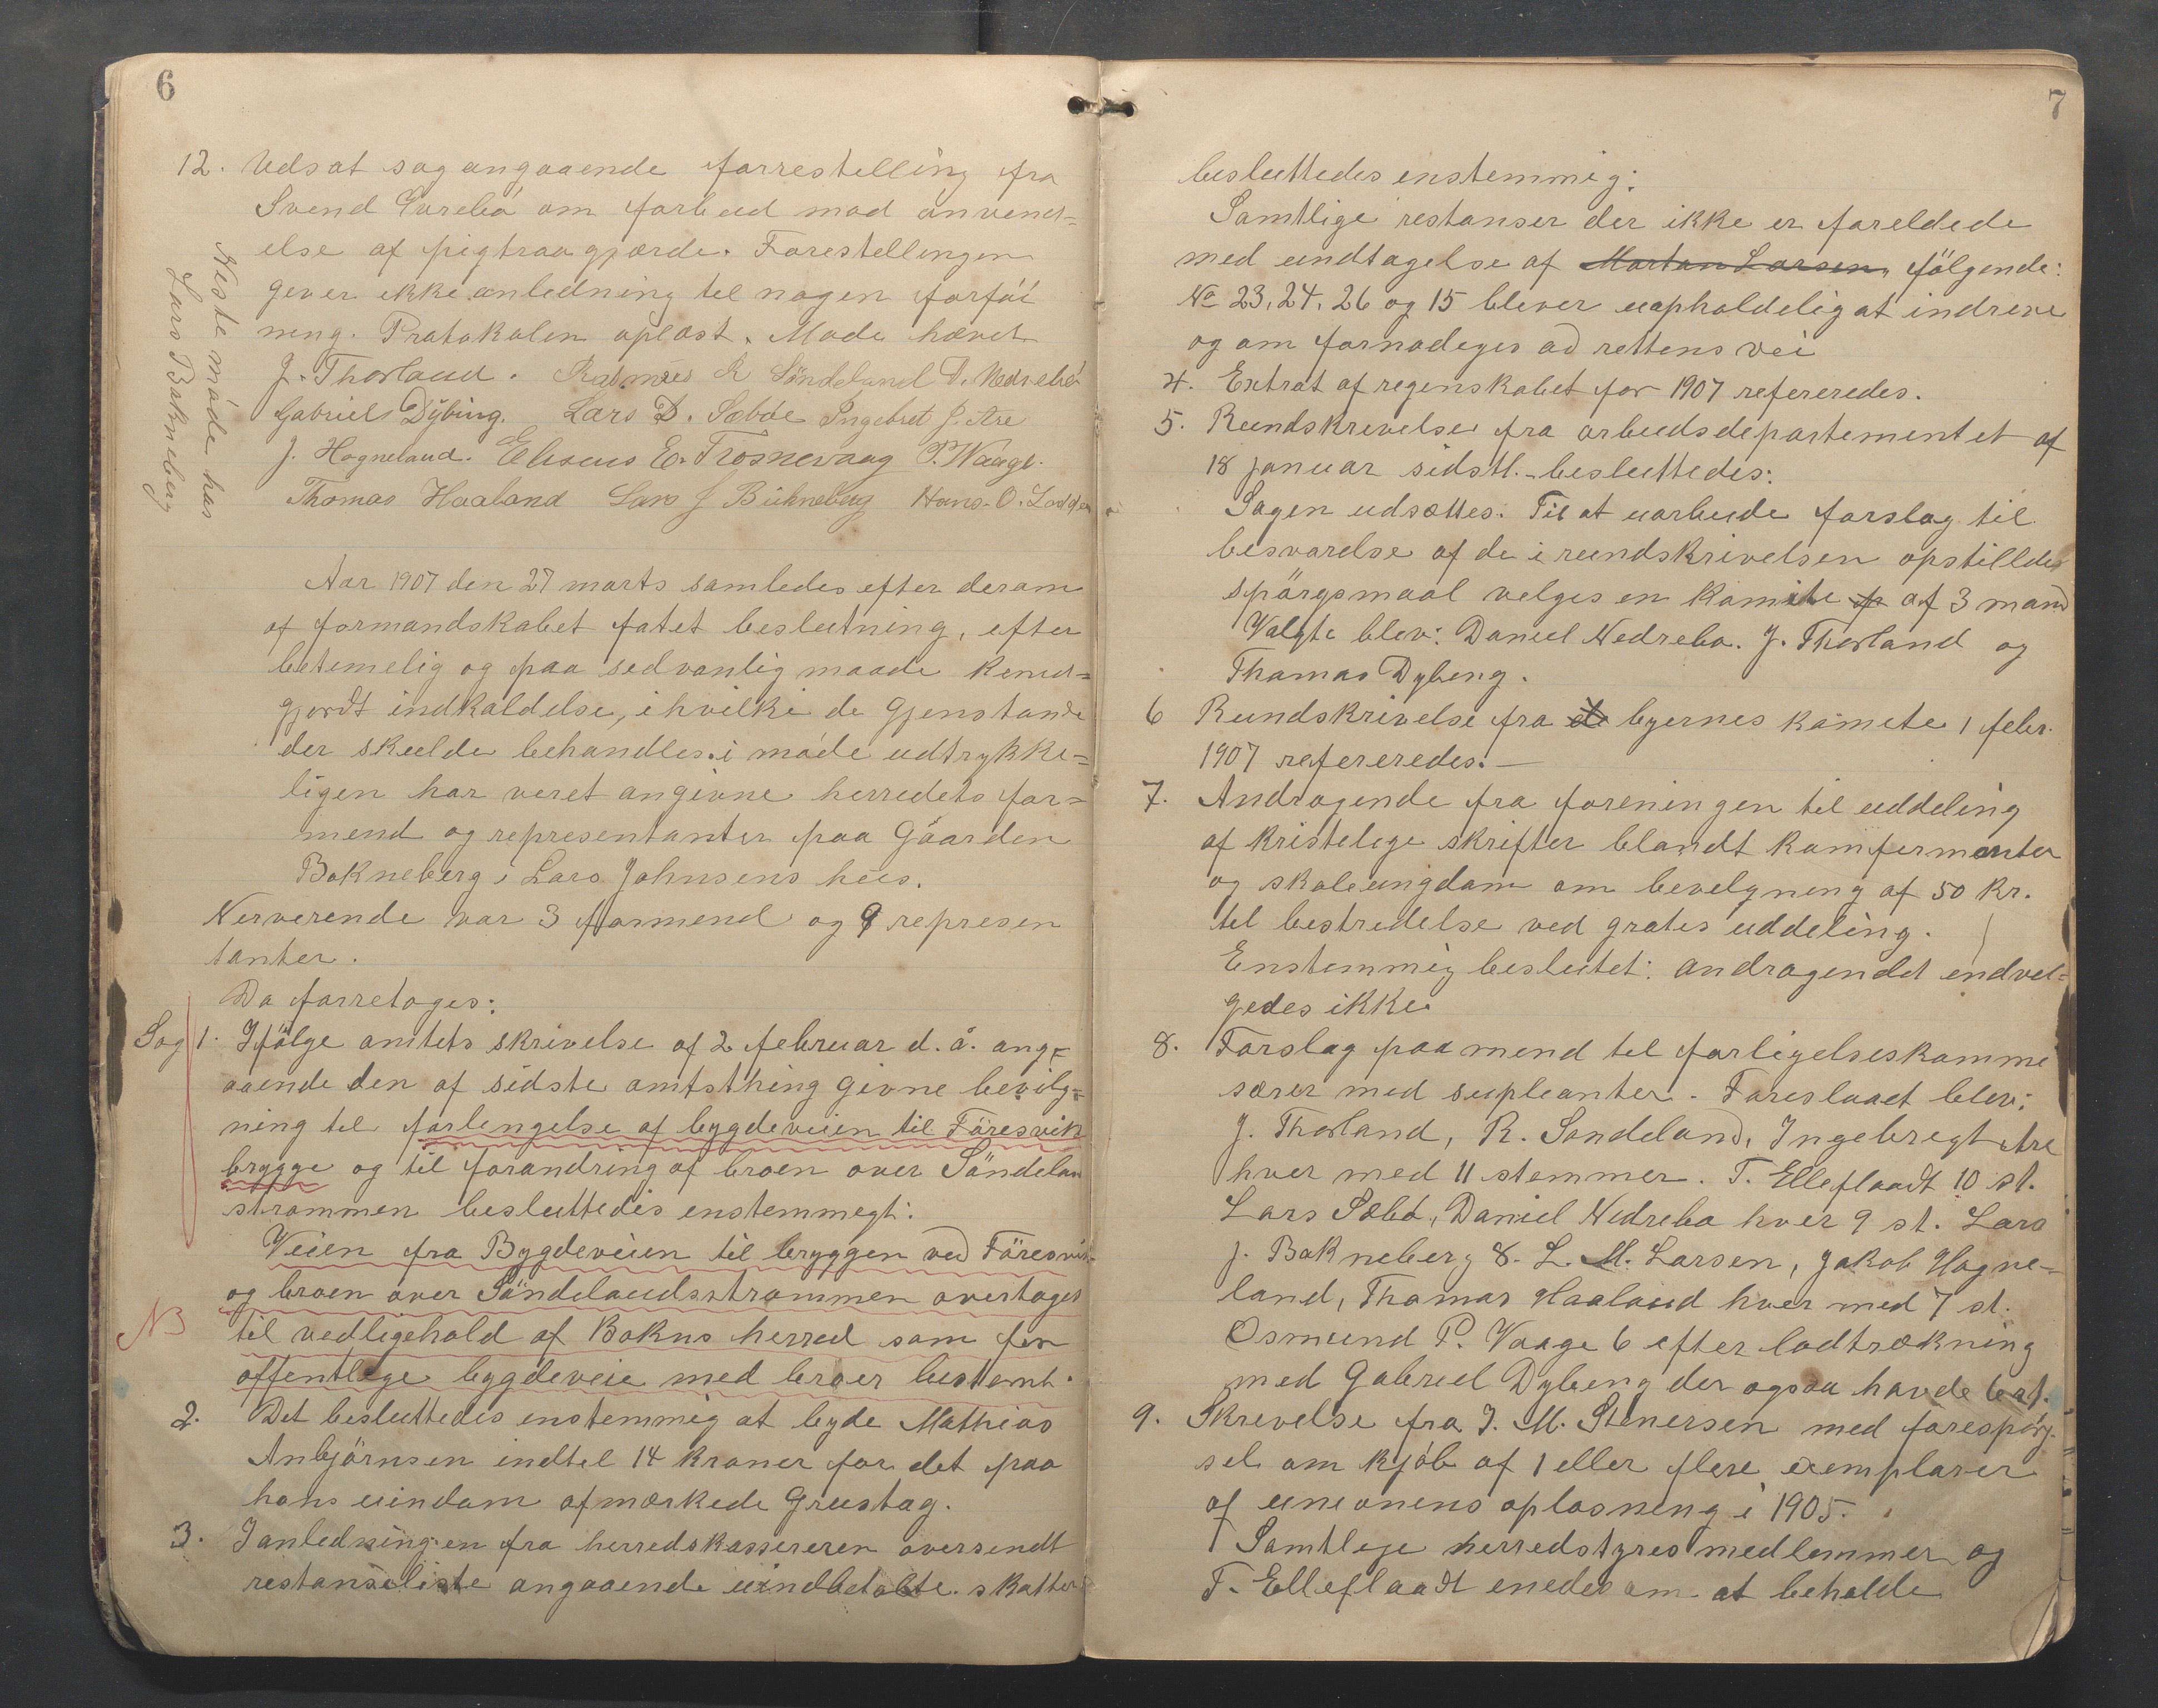 6
12. Udsat sag angaaende forrestelling fra
Svend Evrebö om forbud mod anvend=
else af pigtraagjærde. Forestellingen
gever ikke anledning til nogen forföi
ning. Protokolen oplæst. Möde hævet
J. Thorland. Rasmus R Söndeland D. Nedrebö
Gabriel Dybing. Lars D. Sæbøe Ingebret J. Are
J. Hogneland. Eliseus E. Trosnevaag P. Waage.
Thomas Haaland Lars J Bukneberg Hans. O. Lodden
Neste möde hos
Lars Bakneberg
Aar 1907 den 27 marts samledes efter derom
af formandskabet fatet beslutning, efter
betemelig og paa sedvanlig maade kund=
gjordt indkaldelse, i hvilke de gjenstande
der skulde behandles i möde udtrykke=
ligen har veret angivne herredets for=
mend og representanter paa Gaarden
Bokneberg i Lars Johnsens hus.
Nerverende var 3 formend og 9 represen
tanter.
Da forretoges:
Sag 1. Ifölge amtets skrivelse af 2 februar d. å. ang=
aaende den af sidste amtsthing givne bevilg=
ning til forlengelse af bygdeveien til Föresvik
brygge og til forandring af broen over Söndelan
strømmen besluttedis enstemmegt:
Veien fra Bygdeveien til bryggen ved Föresvik
og broen over Söndelandsstrommen overtages
NB
til vedligehold af Bokns herred som for
offentlege bygdeveie med broer bestemt.
2. Det besluttedis enstemmig at byde Mathias
Anbjörnsen indtil 14 kroner for det paa
hans eiendom afmærkede Grustag.
3. I anledningen fra herredskassereren oversendt
restanseliste angaaende uindbetalte skatter
7
besluttedes enstemmig:
Samtlige restanser der ikke er foreldede
med undtagelse af Morten Larsen, fölgende:
No 23, 24, 26 og 15 blever uopholdelig at indreve
og om fornodeges ad rettens vei
4. Extrat af regenskabet for 1907 refereredes.
5. Rundskrivelse fra arbudsdepartementet af
18 januar sidstl. besluttedes:
Sagen udsættes. Til at uarbude forslag til
besvarelse af de i rundskrivelsen opstillde
spörgsmaal velges en komite af 3 mand
Valgte blev: Daniel Nedrebo. J. Thorland og
Thomas Dybing.
6 Rundskrivelse fra de byernes komete 1 febr.
1907 refereredes. —
7. Andragende fra foreningen til uddeling
af kristelige skrifter blandt komfermanter
og skoleungdom om bevelgning af 50 Kr.
til bestredelse ved grates uddeling.
Enstemmig beslutet: andragendet endvel=
gedes ikke
8. Forslag paa mend til forligelseskomme
særer med supleanter. Foreslaaet blev:
J. Thorland, R. Sondeland, Ingebregt Are
hver med 11 stemmer. T. Elleflaadt 10 st.
Lars Sæbö, Daniel Nedrebo hver 9 st. Lars
J. Bokneberg 8. L. M. Larsen, Jakob Hogne-
land, Thomas Haaland hver med 7 st.
Osmund P. Vaage 6 efter lodtrækning
med Gabriel Dybeng der ogsaa havde 6 st.
9. Skrevelse fra J. M. Stenersen med forespörg-
sel om kjöb af 1 eller flere exemplarer
af unionens oplosning i 1905.
Samtlege herredstyresmedlemmer og
T. Elleflaadt enedes om at beholde